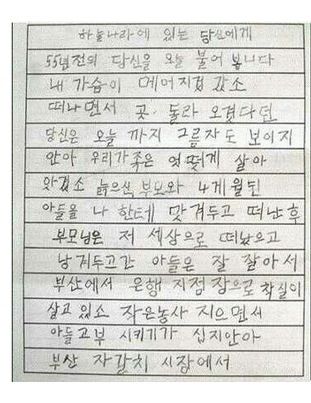 하늘나라에 있는 당신에게
55년전의 당신을 오늘 불어 봅니다
내 가슴이 메어지겠 갔소
떠나면서 곳. 돌라 오겠다던
당신은 오늘 까지 그름자도 보이지
안아 우리가족은 엇떻게 살아
와겠소 늙으식 부모와 4개월된
아들을 나 한테 맞겨두고 떠난후
부모님은 저 세상으로 떠났으고
남겨두고간 아들은 잘 잘아서
부산에서 은행 지점 장으로 착실이
살고 있소 작은농사 지으면서
아들고부 시키기가 십지안아
부산 자갈치 시장에서